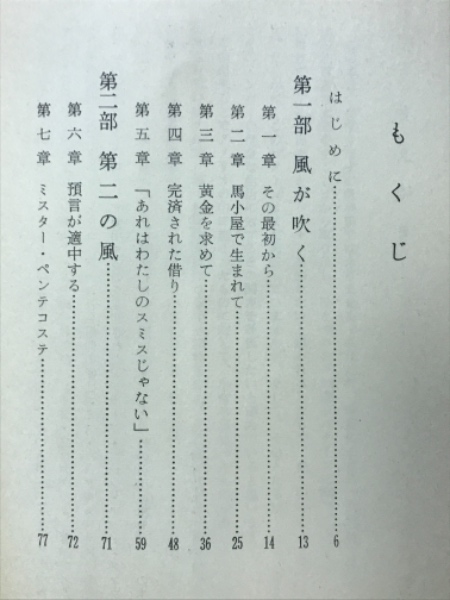 もくじ
はじめに……………………6
第一部 風が吹く……………………13
第一章 その最初から……………………14
第二章 馬小屋で生まれて……………………25
第三章 黄金を求めて……………………36
第四章 完済された借り……………………48
第五章 「あれはわたしのスミスじゃない」……………………59
第二部 第二の風……………………71
第六章 預言が適中する……………………72
第七章 ミスター・ペンテコステ……………………77